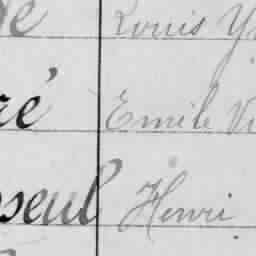 Louis
ré Emile
seul Henri